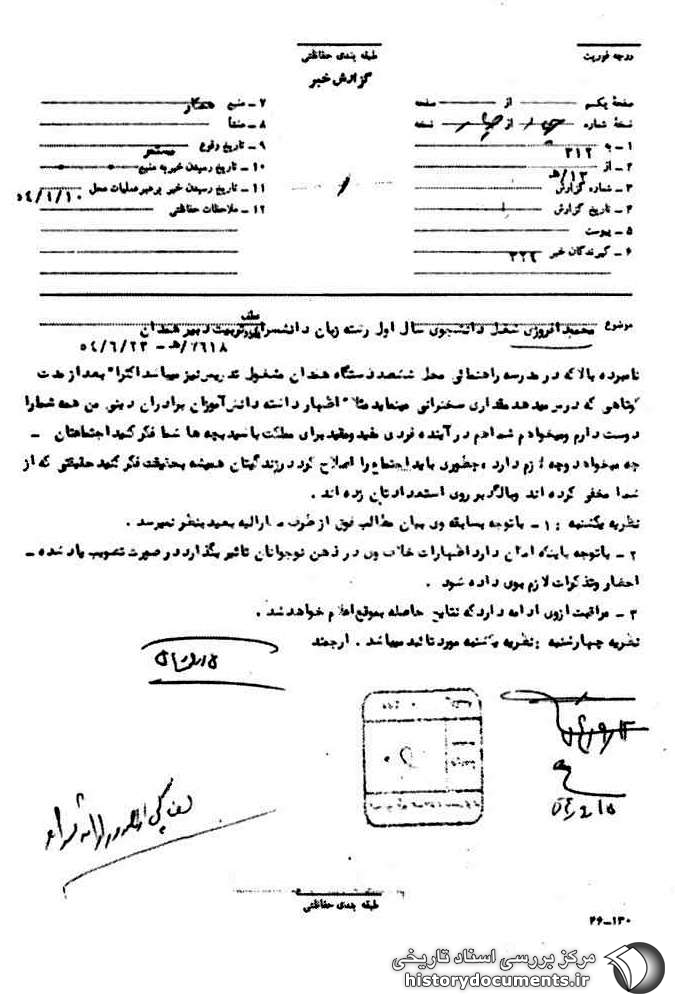 درجه فوریت
طبقه بندی حفاظتی
گزارش خبر
صفحهٔ یکم از صفحه
نسخهٔ شماره چهار از چهار نسخه
۱ - به ۳۱۲
۲ - از ۱۳/ه‍
۳ - شماره گزارش
۴ - تاریخ گزارش
۵ - پیوست
۶ - گیرندگان خبر
۷ - منبع همکار
۸ - منشأ
۹ - تاریخ وقوع مستمر
۱۰ - تاریخ رسیدن خبر به منبع
۱۱ - تاریخ رسیدن خبر برهبر عملیات محل ۵٤/۱/۱۰
۱۲ - ملاحظات حفاظتی
موضوع محمد افروزی شغل دانشجوی سال اول رشته زبان دانشسرای تربیت دبیر همدان
عطف
۵٤/٦/۲۳ -
نامبرده بالا که در مدرسه راهنمائی محل ششصد دستگاه همدان مشغول تدریس نیز میباشد اکثرا" بعد از مدت
کوتاهی که درس میدهد مقداری سخنرانی مینماید مثلا" اظهار داشته دانش‌آموزان برادران دینی من همه شما را
دوست دارم و میخواهم شما هم در آینده فردی مفید و مفید برای مملکت باشید بچه ها شما فکر کنید اجتماعتان -
چه میخواهد و چه لازم دارد ، چطوری باید اجتماع را اصلاح کرد در زندگیتان همیشه بحقیقت فکر کنید حقیقتی که از
شما مخفی کرده اند و بالگد بر روی استعدادتان زده اند .
نظریه یکشنبه : ۱ - با توجه بسابقه وی بیان مطالب فوق از طرف مشارالیه بعید بنظر نمیرسد .
۲ - با توجه باینکه امکان دارد اظهارات خلاف وی در ذهن نوجوانان تاثیر بگذارد در صورت تصویب یاد شده -
احضار و تذکرات لازم بوی داده شود .
۳ - مراقبت از وی ادامه دارد که نتایج حاصله بموقع اعلام خواهد شد .
نظریه چهارشنبه : نظریه یکشنبه مورد تائید میباشد . ارجمند
طبقه بندی حفاظتی
۲۶-۱۳۰
مرکز بررسی اسناد تاریخی
historydocuments.ir